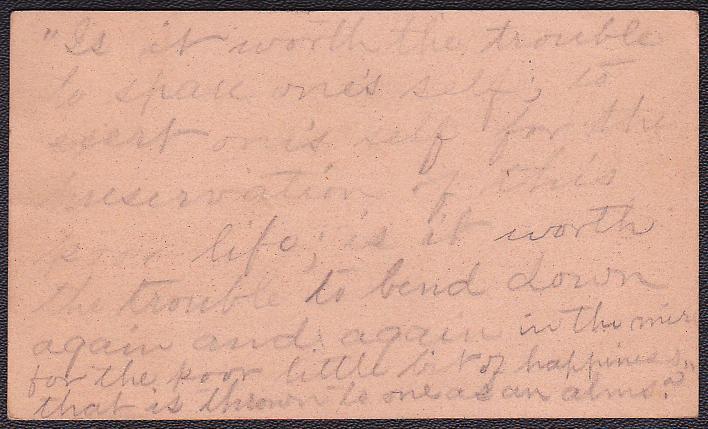 "Is it worth the trouble
to spare one's self, to
exert one's self for the
preservation of this
poor life; is it worth
the trouble to bend down
again and again in the mire
for the poor little bit of happiness
that is thrown to one as an alms?"